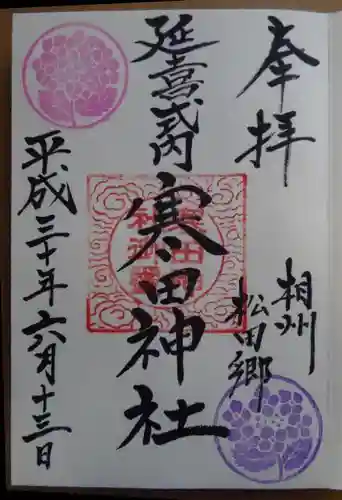 奉拝
相州
松田郷
延喜式内
寒田神社
平成三十年六月十三日